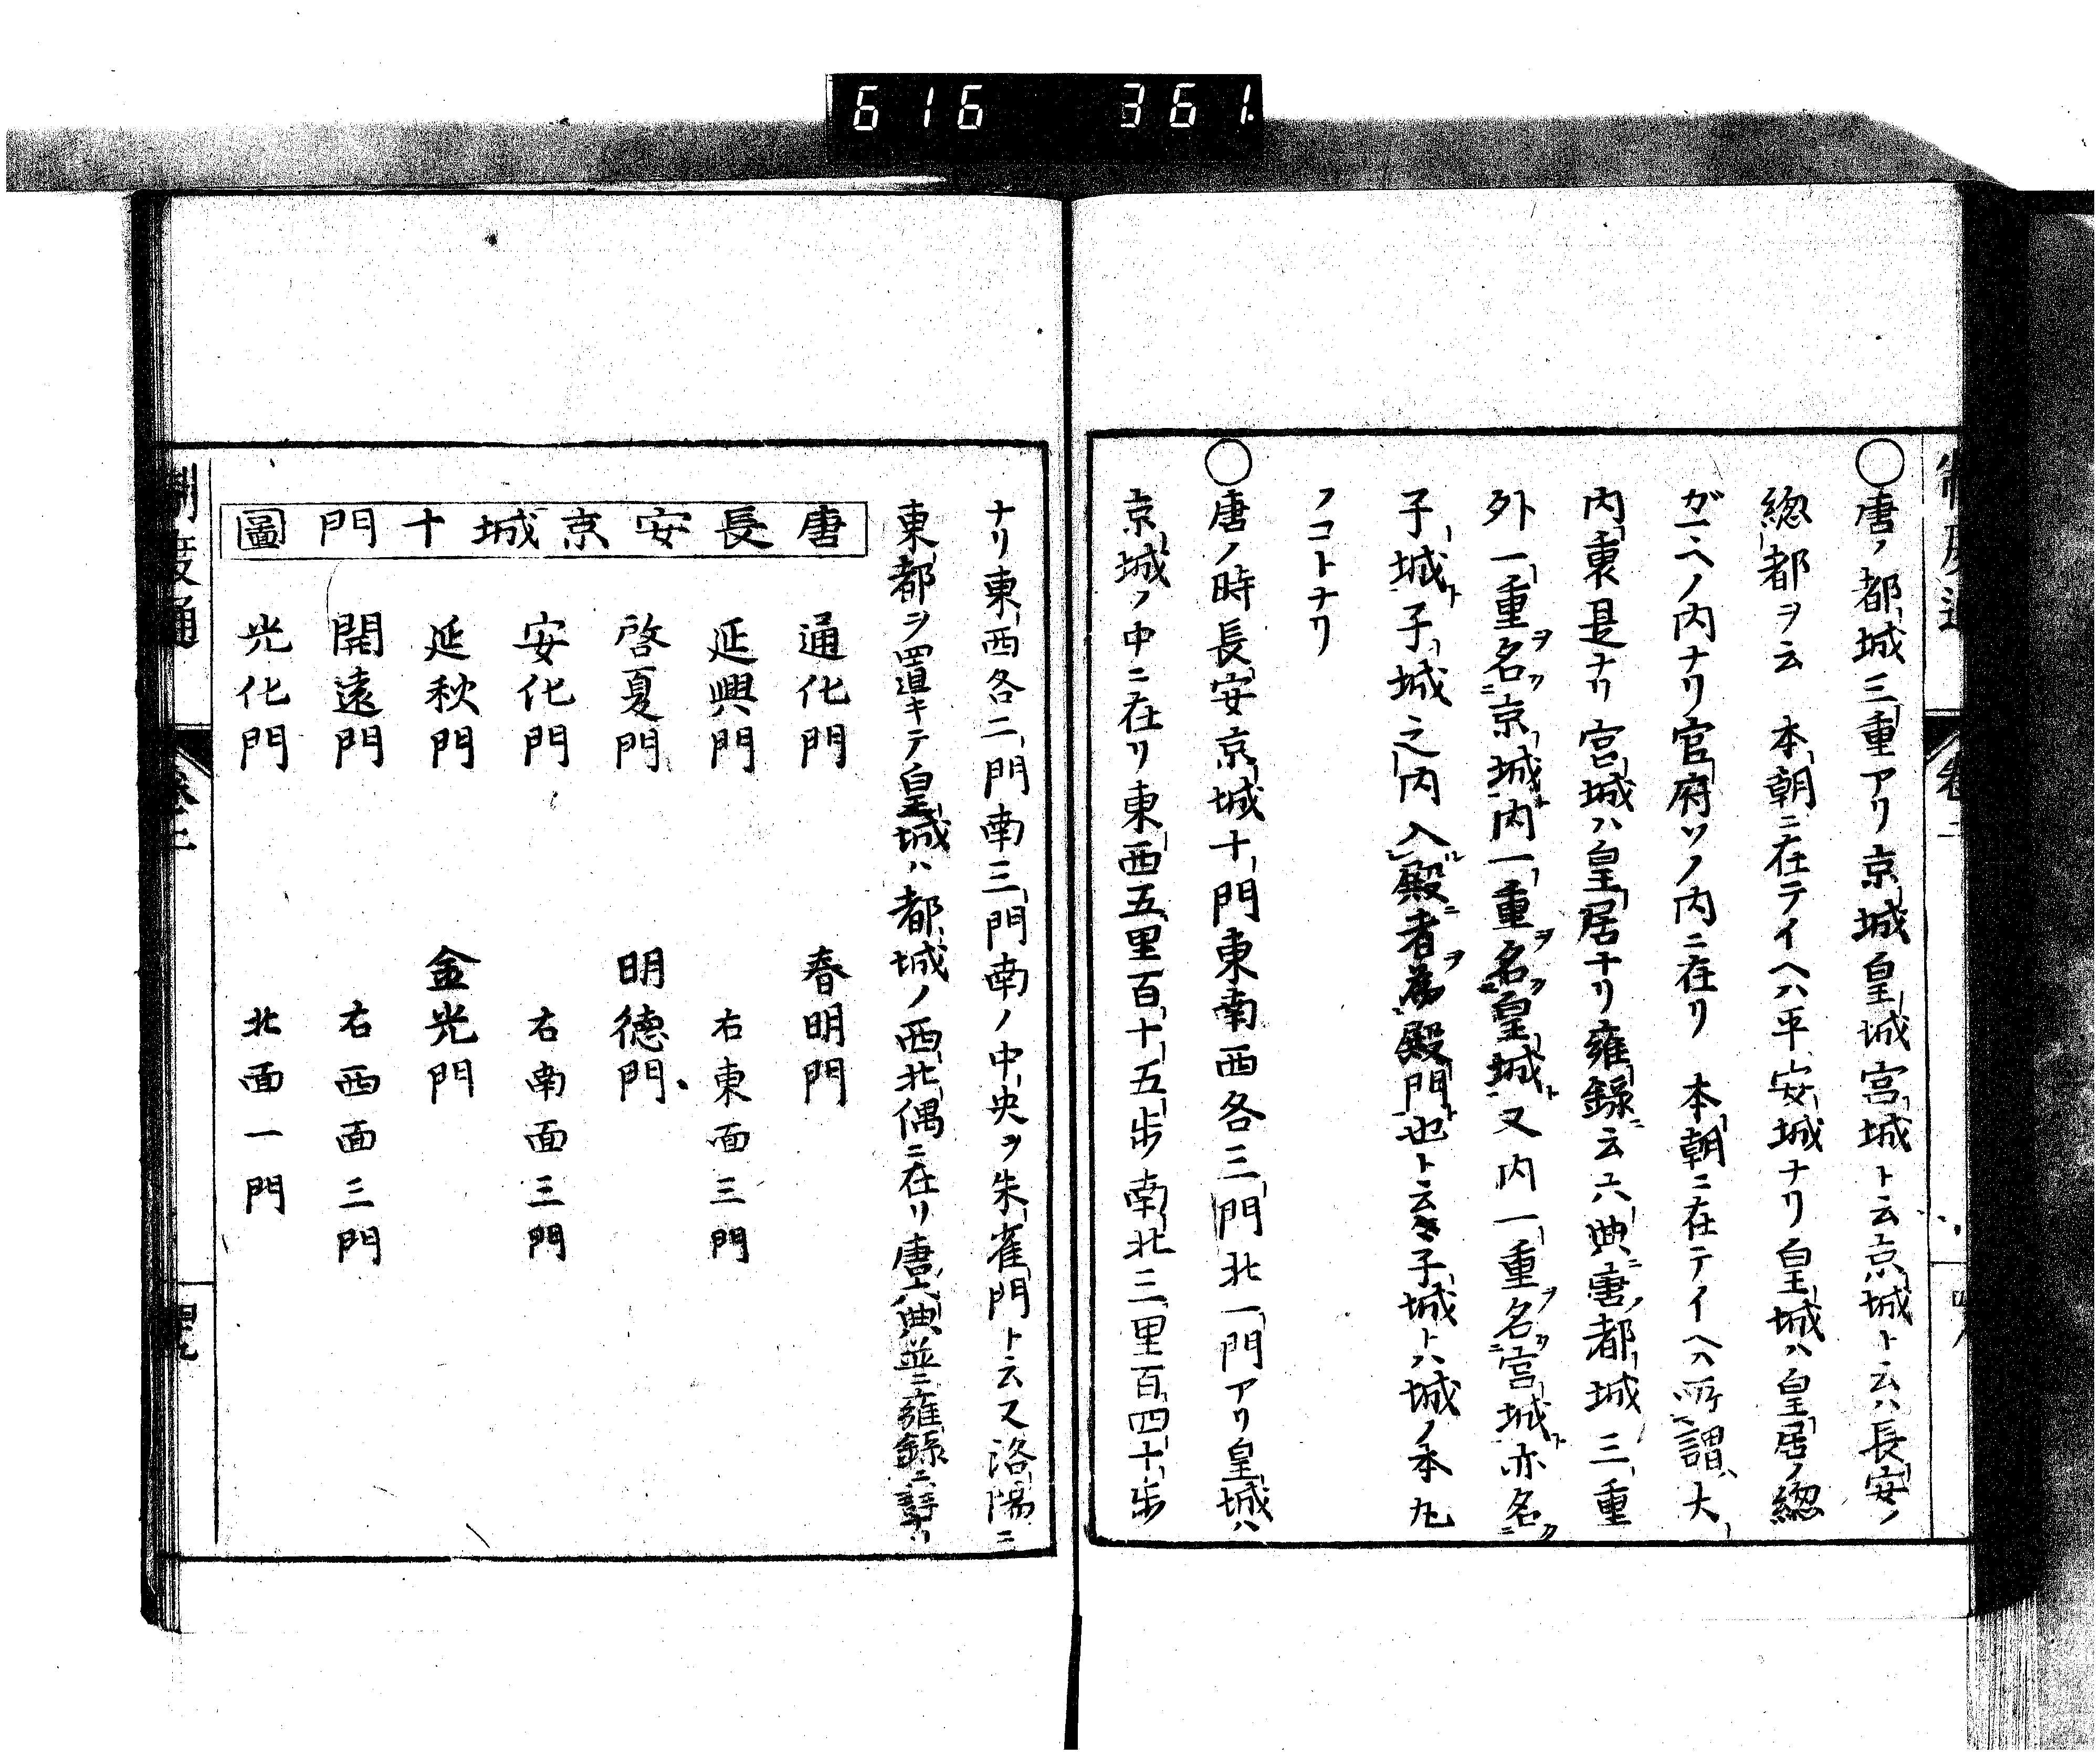 616 361.
○唐ノ都城三重アリ京城皇城宮城ト云京城ト云ハ長安ノ
総都ヲ云 本朝ニ在テイヘハ平安城ナリ皇城ハ皇居ノ総
ガマヘノ内ナリ官府ソノ内ニ在リ 本朝ニ在テイヘハ所謂大
内裏是ナリ宮城ハ皇居ナリ雍録ニ云六典ニ唐ノ都城三重
外一重ヲ名ク京城ト内一重ヲ名ク皇城ト又内一重ヲ名ク宮城ト亦名ク
子城ト子城之内入殿者為殿門也ト云子城トハ城ノ本丸
ノコトナリ
○唐ノ時長安京城十門東南西各三門北一門アリ皇城ハ
京城ノ中ニ在リ東西五里百十五歩南北三里百四十歩
ナリ東西各二門南三門南ノ中央ヲ朱雀門ト云又洛陽ニ
東都ヲ置キテ皇城ハ都城ノ西北偶ニ在リ唐六典並ニ雍録ニ詳ナリ
唐長安京城十門圖
通化門 春明門
延興門 右東面三門
啓夏門 明徳門
安化門 右南面三門
延秋門 金光門
開遠門 右西面三門
光化門 北面一門
制度通 卷二